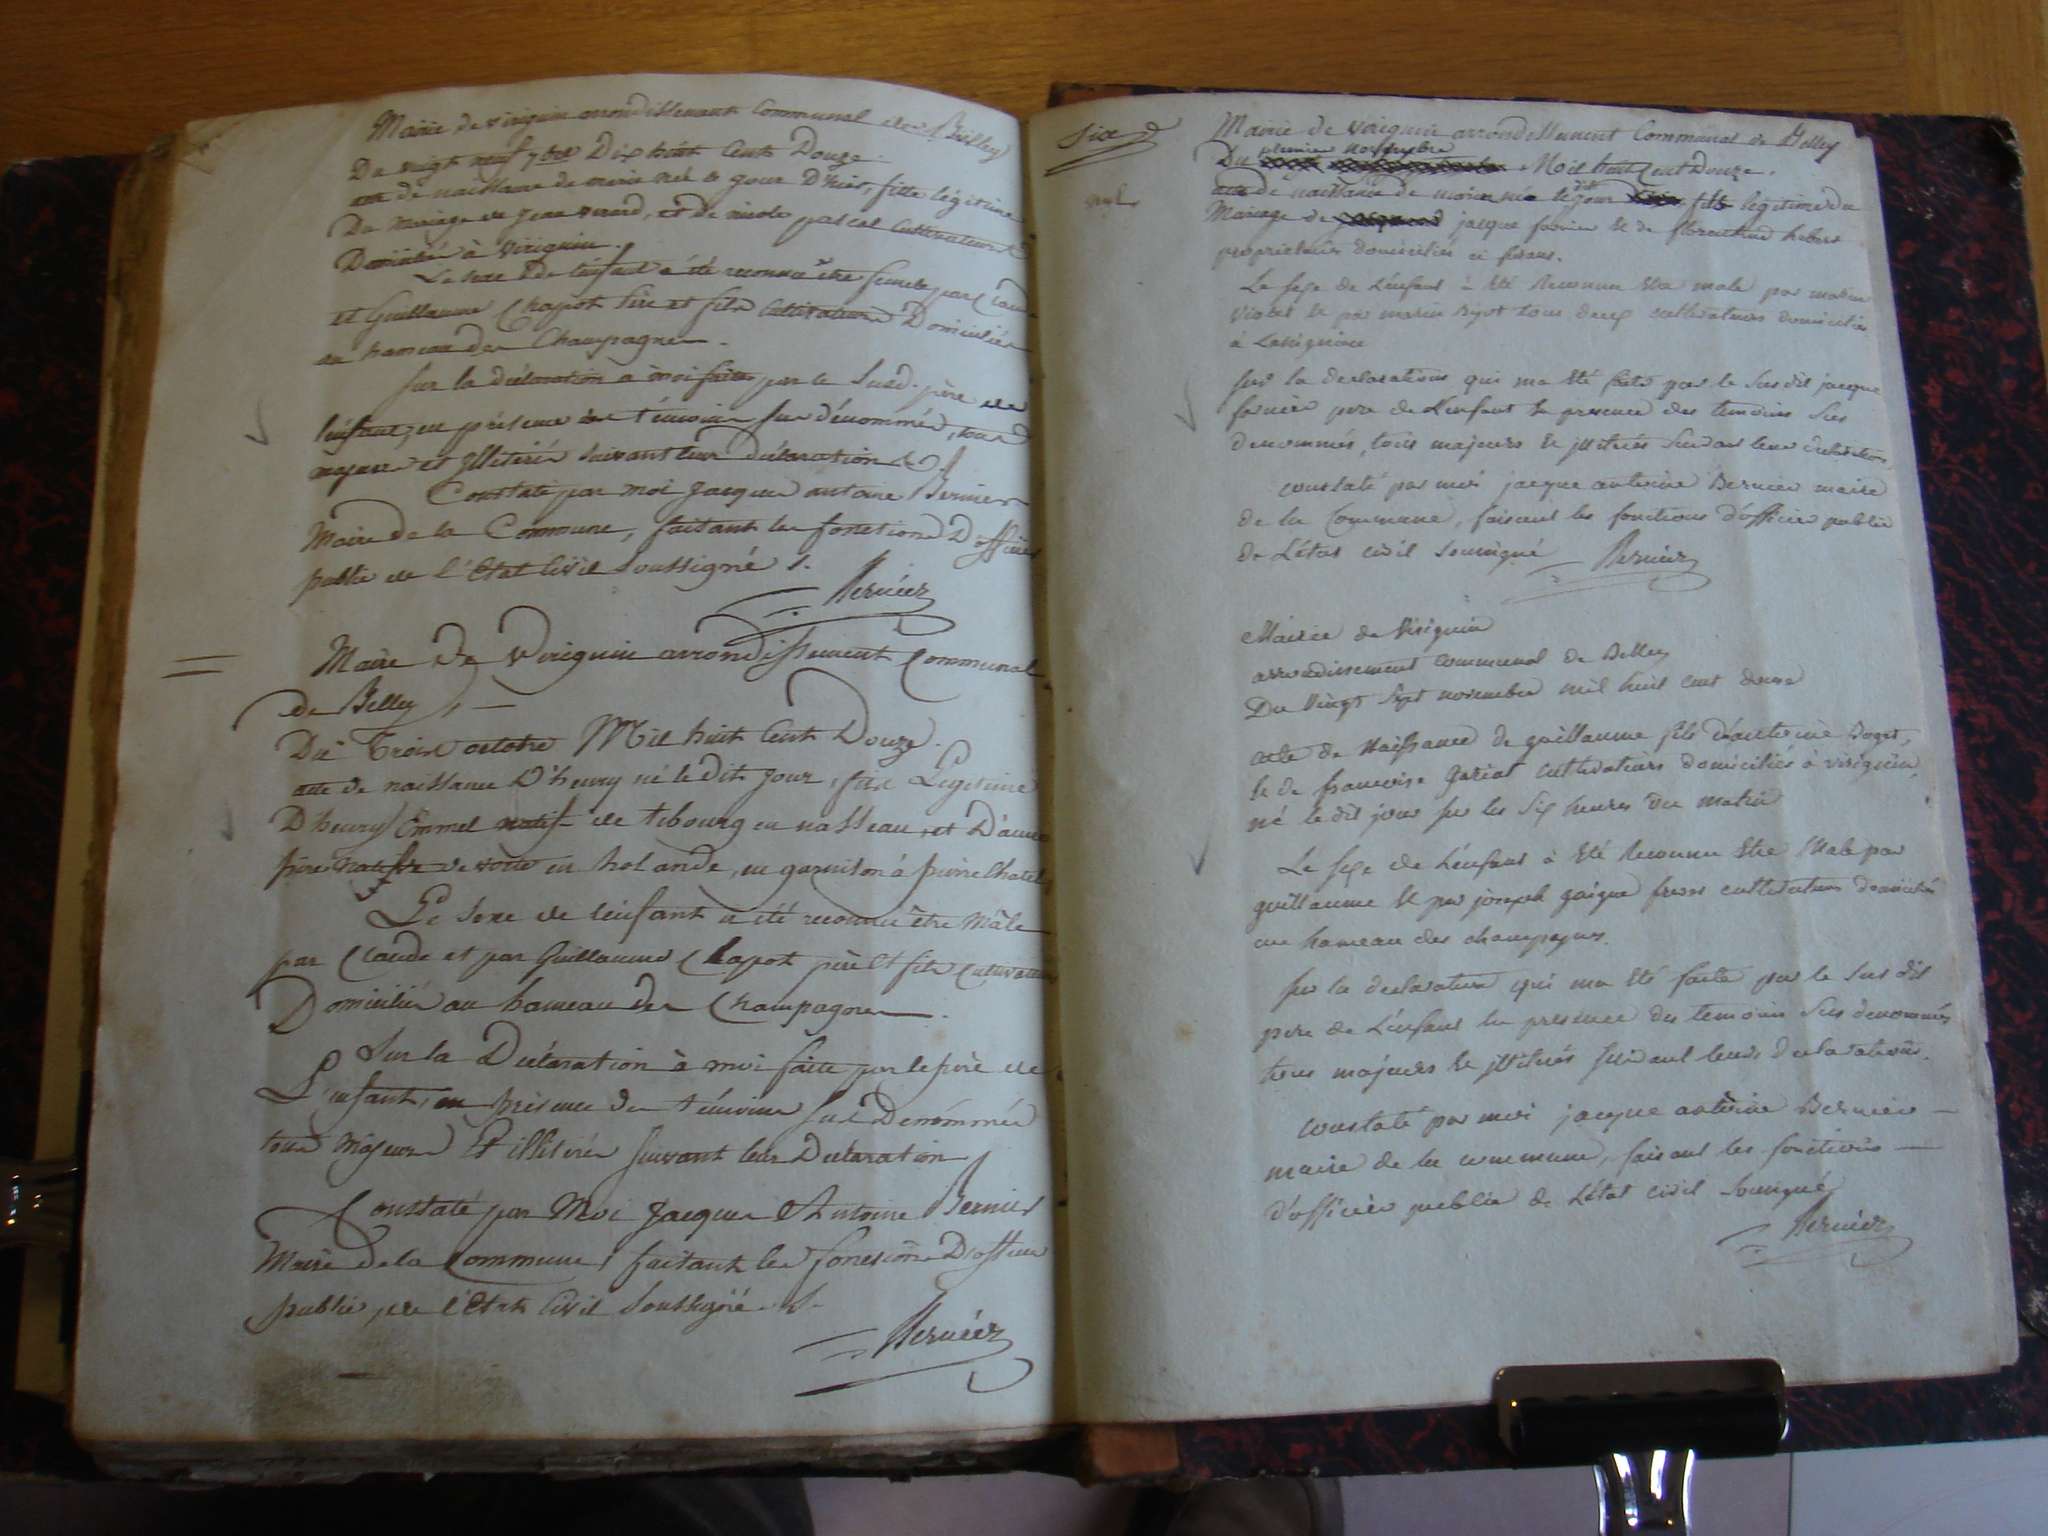 Mairie de virignin arrondissement Communal de Belley
Du vingt neuf 7bre Dix huit Cent Douze
acte de naissance de marie née le jour D'hier, fille légitime
Du mariage de Jean , et de nicole pascal Cultivateurs
Domiciliés à virignin.
Le sexe de l'enfant a été reconnu être femelle par Claude
et Guillaume Chapot père et fils Cultivateurs Domiciliés
au hameau des Champagnes.
Sur la déclaration à moi faite par le Susd. père de
l'enfant, en présence des témoins sus dénommés, tous
majeurs et illitérés suivant leur déclaration
Constaté par moi Jacques antoine Bernier
Maire de la Commune, faisant les fonctions D'officier
public de l'Etat Civil Soussigné
Bernier
Mairie De Virignin arrondissement Communal
de Belley
Du Trois octobre Mil huit Cent Douze.
acte de naissance D'henry né le dit jour, fils Legitime
D'henry Emmel natif de tibourg en nasseau, et D'anne
en holande, en garnison à pierre Chatel
Le sexe de l'enfant a été reconnu être Mâle
par Claude et par Guillaume Chapot père et fils Cultivateurs
Domiciliés au hameau des Champagnes.
Sur la Déclaration à moi faite par le père de
L'enfant, en présence des témoins sus Denommés
tous Majeurs Et illitérés suivant leur Déclaration
Constaté par Moi Jacques Antoine Bernier
Maire de la Commune, faisant les fonctions D'officier
public de l'Etat Civil Soussigné
Bernier
Six
Mairie de virignin arrondissement Communal de Belley
premier novembre
Du Mil huit Cent Douze.
acte de naissance de né le dit jour fils légitime du
Mariage de jacque fornier & de hebert
propriétaires domiciliés à
Le sexe de L'enfant à été Reconnu être male par
violet & par marin tous deux cultivateurs domiciliés
à
sur la declarations qui ma été faite par le sus dit jacque
fornier pere de L'enfant en presence des temoins sus
denommés, tous majeurs & illitérés suivant leur declaration.
constaté par moi jacque antoine Bernier maire
de la Commune, faisant les fonctions d'officier public
de L'état civil soussigné Bernier
Mairie de Virignin
arrondissement communal de Belley
Du Vingt sept novembre mil huit cent douze
acte de Naissance de guillaume fils d'antoine Boget,
& de françoise gariot cultivateurs domiciliés à virignin,
né le dit jour sur les six heures du matin
Le sexe de L'enfant à été Reconnu être Male par
guillaume & par joseph goigue freres cultivateurs domiciliés
au hameau des champagnes.
sur la declaration qui ma été faite par le sus dit
pere de L'enfant en presence des temoins sus denommés
tous majeurs & illitérés suivant leurs declarations.
constaté par moi jacque antoine Bernier
maire de la commune, faisant les fonctions
d'officier public de L'état civil soussigné
Bernier